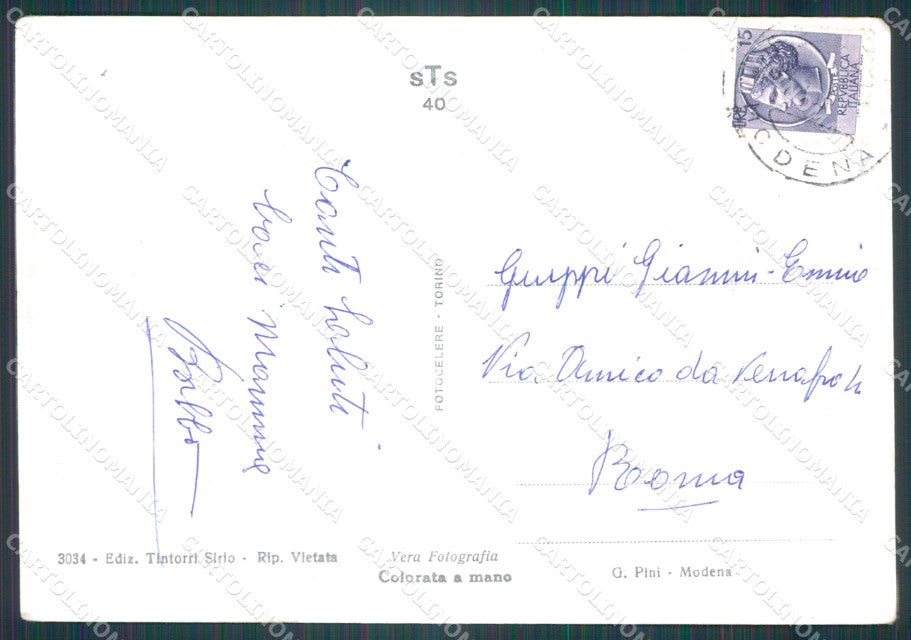 sTs
40
LIRE 15
POSTE
REPVBBLICA
ITALIANA
MODENA
Tanti saluti
baci Mamma
Babbo
FOTOCELERE - TORINO
Giuppi Gianni - Ennio
Via Amico da Venafro 4
Roma
3034 - Ediz. Tintorri Sirio - Rip. Vietata
Vera Fotografia
Colorata a mano
G. Pini - Modena
CARTOLINOMANIA